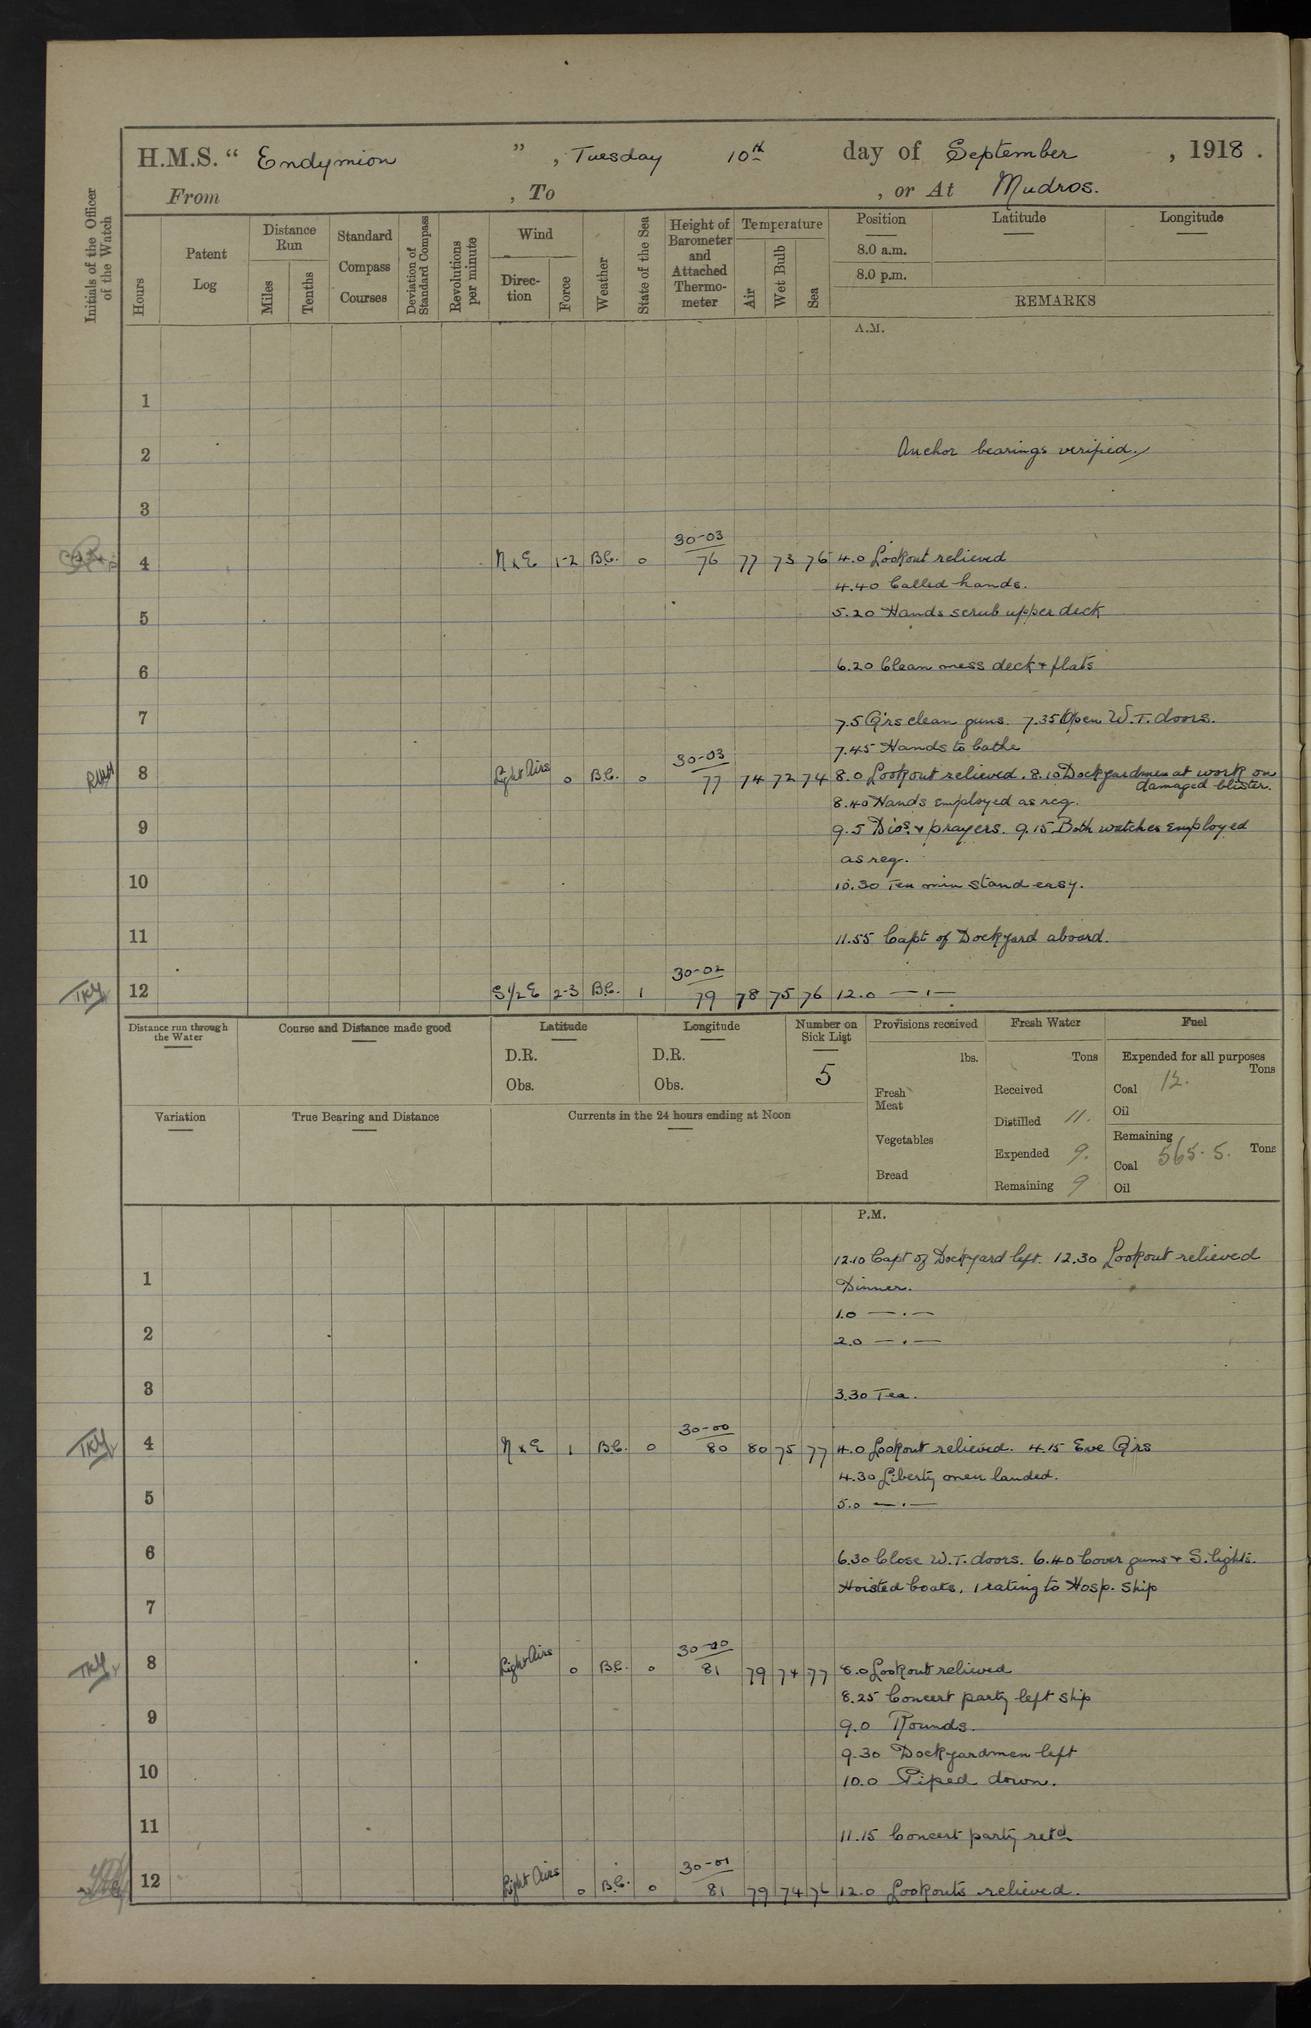 H.M.S. “ Endymion ” , Tuesday 10th day of September , 1918 .
From , To , or At Mudros.
Initials of the Officer of the Watch
Hours
Patent Log
Distance Run
Miles
Tenths
Standard Compass Courses
Deviation of Standard Compass
Revolutions per minute
Wind
Direc-tion
Force
Weather
State of the Sea
Height of Barometer and Attached Thermo-meter
Temperature
Air
Wet Bulb
Sea
Position Latitude Longitude
8.0 a.m.
8.0 p.m.
REMARKS
A.M.
1
2 Anchor bearings verified.
3
30-03
4 N x E 1-2 B.C. 0 76 77 73 76 4.0 Lookout relieved
4.40 Called hands.
5 5.20 Hands scrub upper deck
6 6.20 Clean mess deck + flats
7 7.5 Qrs clean guns. 7.35 Open W.T. doors.
7.45 Hands to bathe
30-03
8 Light Airs 0 B.C. 0 77 74 72 74 8.0 Lookout relieved. 8.10 Dockyardmen at work on
damaged blister.
8.40 Hands employed as req.
9 9.5 Divs. + prayers. 9.15 Both watches employed
as req.
10 10.30 Ten min stand easy.
11 11.55 Capt of Dockyard aboard.
30-02
TKY 12 S 1/2 E 2-3 B.C. 1 79 78 75 76 12.0 — . —
Distance run through the Water
Course and Distance made good
Latitude
D.R.
Obs.
Longitude
D.R.
Obs.
Number on Sick List
5
Provisions received
lbs.
Fresh Meat
Vegetables
Bread
Fresh Water
Tons
Received
Distilled 11.
Expended 9.
Remaining 9
Fuel
Expended for all purposes
Tons
Coal 12.
Oil
Remaining
Coal 565.5. Tons
Oil
Variation
True Bearing and Distance
Currents in the 24 hours ending at Noon
P.M.
12.10 Capt of Dockyard left. 12.30 Lookout relieved
1 Dinner.
1.0 — . —
2 2.0 — . —
3 3.30 Tea.
30-00
TKY 4 N x E 1 B.C. 0 80 80 75 77 4.0 Lookout relieved. 4.15 Eve Qrs
4.30 Liberty men landed.
5 5.0 — . —
6 6.30 Close W.T. doors. 6.40 Cover guns + S. lights.
Hoisted boats, 1 rating to Hosp. Ship
7
30-00
TKY 8 Light Airs 0 B.C. 0 81 79 74 77 8.0 Lookout relieved
8.25 Concert party left ship
9 9.0 Rounds.
9.30 Dockyardmen left
10 10.0 Piped down.
11 11.15 Concert party retd
30-01
12 Light Airs 0 B.C. 0 81 79 74 76 12.0 Lookouts relieved.